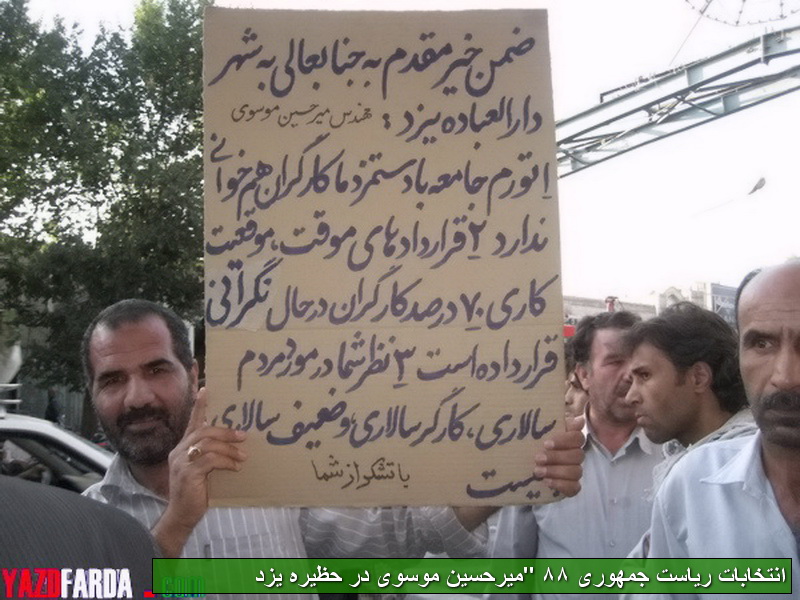 ضمن خیر مقدم به جنابعالی به شهر
دارالعباده یزد : مهندس میرحسین موسوی
۱ تورم جامعه با دستمزد ما کارگران هم خوانی
ندارد ۲ قراردادهای موقت، موقعیت
کاری ۷۰ درصد کارگران در حال نگرانی
قرار داده است ۳ نظر شما در مورد مردم
سالاری، کارگر سالاری، وضعیف سالاری
چیست
با تشکر از شما
انتخابات ریاست جمهوری ۸۸ "میرحسین موسوی در حظیره یزد
YAZDFARDA.com